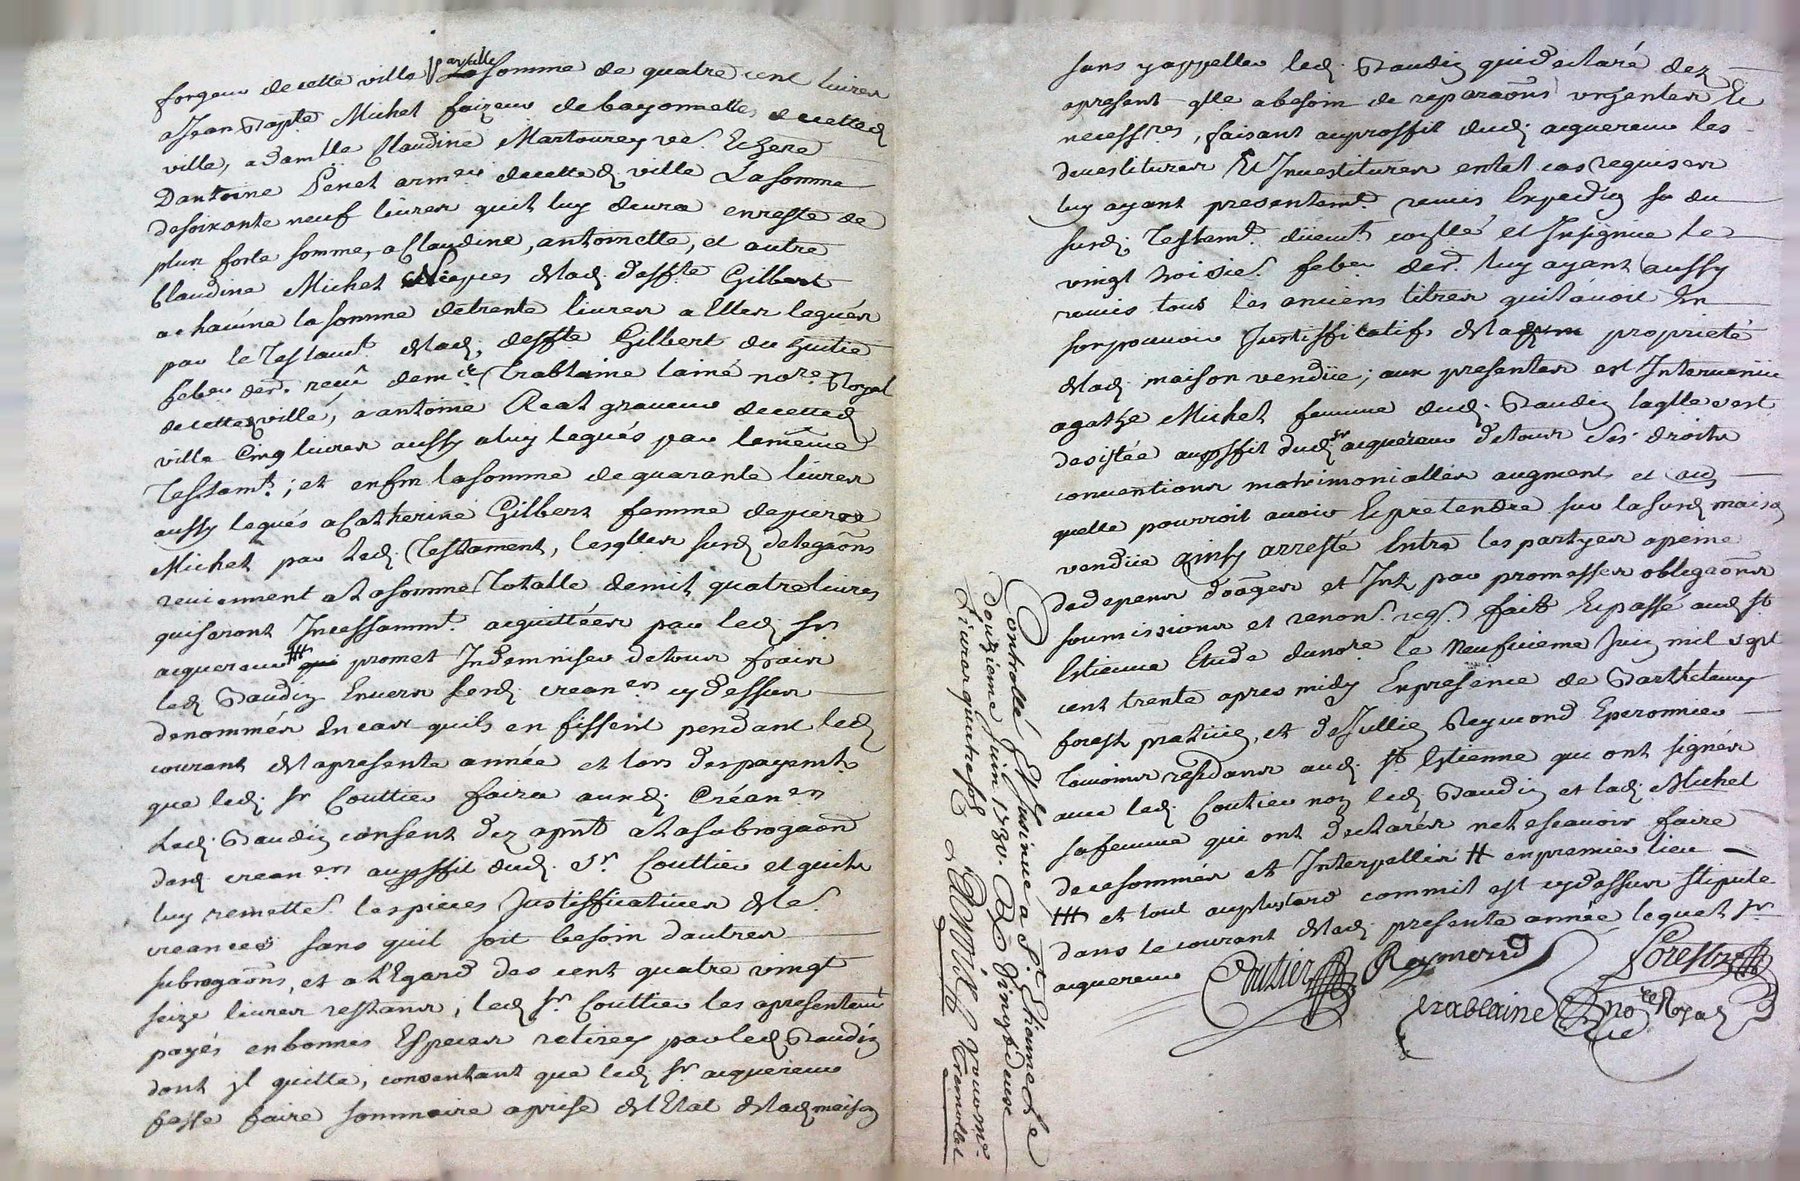 forgeur de cette ville pareille somme de quatre cent livres
a Jean Bapte Michel faizeur de bayonnettes de cette d.
ville, a damlle Claudine Martourey ve. &
D'antoine Penel armeur de cette d. ville La somme
de soixante neuf livres quil luy devra en reste de
plus forte somme, a Claudine, antoinette, et autre
Claudine Michel Nieques de lad. deffte Gilbert
a chacune la somme de trente livres a Elles legués
par le Testamt. de lad. deffte Gilbert du huitie
febver der. reçû de me Crablaine lainé nore Royal
de cette d. ville, a antoine Reat graveur de cette d.
ville Cinq livres aussy a luy legués par le même
Testamt. ; et enfin la somme de quarante livres
aussy legués a Catherine Gilbert femme de pierre
Michel par led. Testament, lesqlles surd. delegaōns
reviennent a la somme Totalle de mil quatre livres
quiseront Incessammt. acquittées par led. Sr.
acquereur ## promet Indemniser de tous frais
led. Baudin Envers lesd. crean.ers cy dessus
denommés En cas quils en fissent pendant led.
courant de la presente année et lors des payemts.
que led. Sr Couttier faira ausd. Créan.ers
Led. Baudin consent dez apnt a la subrogaōn
desd. crean.ers au proffit dud. Sr. Couttier et quils
luy remette. les pieces Justifficatives de le.
creances sans quil soit besoin dautres
subrogaōns, et a l'Egard des cent quatre vingt
seize livres restans, led. Sr. Couttier les a presentemt
payés en bonnes Especes retirez par led. Baudin
dont jl quitte, consentant que led. Sr. acquereur
fasse faire sommaire aprise de l'Etat de lad. maison
sans y appeller led. Baudin qui declaré dez
apresent qlle a besoin de reparaōns urgentes Et
necessres, faisant au proffit dud. acquereur les
devestitures Et Investitures en tel cas requises
luy ayant presentemt. remis Expedion du
susd. Testamt. düemt. controllé et Insignué le
vingt troisie. febver der. luy ayant aussy
remis tous les anciens titres quil avoit En
son pouvoir Justifficatifs de la proprieté
de lad. maison vendüe ; aux presentes est Intervenüe
agathe Michel femme dud. Baudin laqlle s'est
desistée au proffit dud. Sr acquereur de tous ses droits
conventions matrimonialles augment et aun
quelle pourroit avoir Et pretendre sur la susd. maison
vendüe ainsy arresté Entre les partyes a peine
de depens domages et Jnt. par promesses obligaōns
soumissions et renon. reqs. fait Et passé aud. St
Estienne Etude du nore le neufvieme Juin mil sept
cent trente apres midy En presence de Barthelemy
forest pratticien, et de Jullien Reymond Eperonnier
temoins residans aud. St. Estienne qui ont signés
avec led. Coutier non led. Baudin et lad. Michel
sa femme qui ont declarés ne le scavoir faire
de ce sommés et Interpellés # en premier lieu
## et tout au plus tard comme il est cy dessus stipulé
dans le courant de lad. presente année lequel Sr
acquereur
Coutier Reymond Forest
Crablaine nore Royal
Controllé Et Insinué a St. Etienne Le
douzieme Juin 1730.
Livres quatre sols